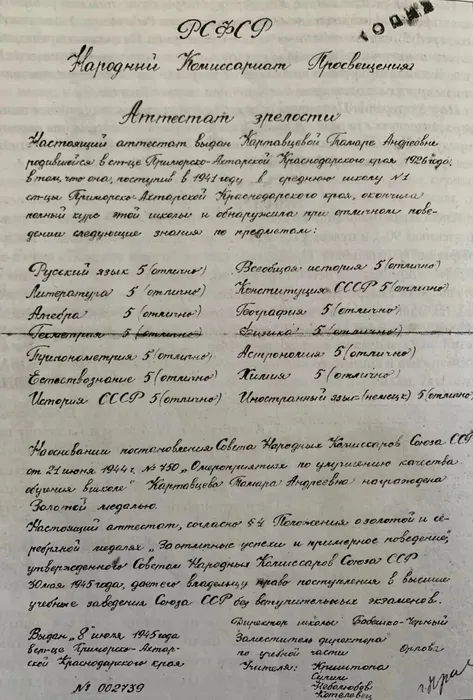 РСФСР
Народный Комиссариат Просвещения
Аттестат зрелости
Настоящий аттестат выдан Картавцевой Тамаре Андреевне
родившейся в ст-це Приморско-Ахтарской Краснодарского края 1926 года,
в том, что она, поступив в 1941 году в среднюю школу №1
ст-цы Приморско-Ахтарской Краснодарского края, окончила
полный курс этой школы и обнаружила при отличном пове-
дении следующие знания по предметам:
Русский язык 5 (отлично) Всеобщая история 5 (отлично)
Литература 5 (отлично) Конституция СССР 5 (отлично)
Алгебра 5 (отлично) География 5 (отлично)
Геометрия 5 (отлично) Физика 5 (отлично)
Тригонометрия 5 (отлично) Астрономия 5 (отлично)
Естествознание 5 (отлично) Химия 5 (отлично)
История СССР 5 (отлично) Иностранный язык (немецк) 5 (отлично)
На основании постановления Совета Народных Комиссаров Союза ССР
от 21 июня 1944 г. № 750 „О мероприятиях по улучшению качества
обучения в школе" Картавцева Тамара Андреевна награждена
Золотой медалью.
Настоящий аттестат, согласно §4 Положения о золотой и се-
ребряной медалях „За отличные успехи и примерное поведение,"
утвержденного Советом Народных Комиссаров Союза ССР
30 мая 1945 года, дает его владельцу право поступления в высшие
учебные заведения Союза ССР без вступительных экзаменов.
Директор школы Бабешко-Черный
Выдан „8" июля 1945 года Заместитель директора
в ст-це Приморско-Ахтар- по учебной части Орлова
ской Краснодарского края Учителя:
Сучин
Котеловец
№ 002739